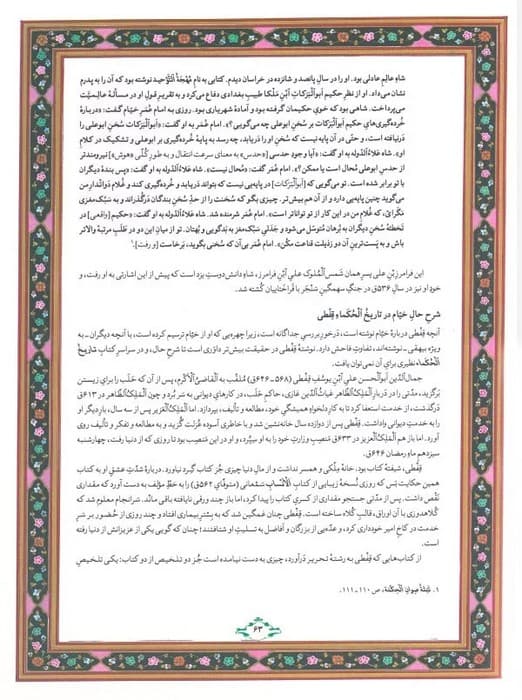 شاهِ عالِمِ عادلی بود. او را در سال پانصد و شانزده در خراسان دیدم. کتابی به نام مُهْجَةُ التَّوْحید نوشته بود که آن را به پدرم
نشان می‌داد. او از نظرِ حکیم اَبوالْبَرَکاتِ اِبْنِ مَلْکا طبیبِ بغدادی دفاع می‌کرد و به تقریرِ قولِ او در مسألهٔ عالمیّت
می‌پرداخت. شاهی بود که خویِ حکیمان گرفته بود و آمادهٔ شهریاری بود. روزی به امام عُمَرِ خیّام گفت: «دربارهٔ
خُرده‌گیری‌هایِ حکیم اَبوالْبَرَکات بر سُخنِ ابوعلی چه می‌گویی؟». امام عُمر به او گفت: «اَبوالْبَرَکات سُخنِ ابوعلی را
دَرنیافته است، و حتّی در آن پایه نیست که سُخنِ او را دَریابد، چه رسد به پایهٔ خُرده‌گیری بر ابوعلی و تشکیک در کلامِ
او». شاه عَلاءُالدّوله به او گفت: «آیا وجودِ حدسی [«حدس» به معنای سرعت انتقال و به طورِ کُلّی «هوش»] نیرومندتر
از حدسِ ابوعلی مُحال است یا ممکن؟». امام عُمر گفت: «مُحال نیست». شاه عَلاءُالدّوله به او گفت: «پس بندهٔ دیگران
با تو برابر شده است. تو می‌گویی که [اَبوالْبَرَکات] در پایه‌یی نیست که بتواند دَریابد و خُرده‌گیری کند و غُلامِ دَواتدارِ من
می‌گوید چنین پایه‌یی دارد و از آن هم بیش‌تر. چیزی بگو که سُخنت را از حدِّ سُخنِ بندگان دَرگُذراند و به سَبُک‌مغزی
نگرایْ، که غُلامِ من در این کار از تو تواناتر است». امام عُمر شرمنده شد. شاه عَلاءُالدّوله به او گفت: «حکیمِ [واقعی] در
تَخطئهٔ سُخنِ دیگران به بُرهان مُتوسّل می‌شود و جَدَلیِ سَبُک‌مغز به بَدگویی و بُهتان. تو از میانِ این دو در طَلَبِ مرتبهٔ والاتر
باش و به پَست‌ترینِ آن دو رَذیلت قناعت مکُن». امام عُمر بی‌آن که سُخنی بگوید، بَرخاست [و رفت].۱
این فرامرز بْنِ علی پسرِ همان شمس‌الْمُلوک علی اِبْنِ فرامرز، شاهِ دانش‌دوستِ یزد است که پیش از این اشارتی به او رفت، و
خودِ او نیز در سالِ ۵۳۶ق در جنگِ سهمگینِ سَنْجَر با قَراخَتاییان کُشته شد.
شرح حال خیّام در تاریخُ الْحُکَماءِ قِفْطی
آنچه قِفْطی دربارهٔ خیّام نوشته است، دَرخورِ بررسیِ جداگانه است، زیرا چهره‌یی که او از خیّام ترسیم کرده است، با آنچه دیگران ـ به
ویژه بیهقی ـ نوشته‌اند، تفاوتِ فاحش دارد. نوشتهٔ قِفْطی در حقیقت بیش‌تر داوَری است تا شرحِ حال، و در سراسرِ کتابِ تاریخُ
الْحُکَماء نظیری برای آن نمی‌توان یافت.
جمال‌الدّین ابوالْحسن علی بْنِ یوسُفِ قِفْطی (۵۶۸ـ۶۴۶ق) مُلقّب به الْقاضِیُ الْأَکْرَم، پس از آن که حَلَب را برای زیستن
برگزید، مدّتی را در دَربارِ الْمَلِکُ‌الظّاهر غیاثُ‌الدّین غازی، حاکمِ حَلَب، در کارهایِ دیوانی به سَر بُرد و چون الْمَلِکُ‌الظّاهر در ۶۱۳ق
دَرگذشت، از خدمت استعفا کرد تا به کارِ دلخواهِ همیشگیِ خود، مطالعه و تألیف، بپردازد. اما الْمَلِکُ‌الْعَزیز پس از سه سال، بارِ دیگر او
را به خدمتِ دیوانی واداشت. قِفْطی پس از دوازده سال خانه‌نشین شد و با خاطری آسوده عُزْلَت گُزید و به مطالعه و تفکر و تألیف روی
آورد. اما باز هم الْمَلِکُ‌الْعَزیز در ۶۳۳ق مَنصبِ وزارتِ خود را به او سِپُرد، و او در این مَنصب بود تا روزی که از دنیا رفت، چهارشنبه
سیزدهمِ ماهِ رمضانِ ۶۴۶ق.
قِفْطی، شیفتهٔ کتاب بود. خانهٔ مِلْکی و همسر نداشت و از مالِ دنیا چیزی جُز کتاب گِرد نیاورد. دربارهٔ شدّتِ عشقِ او به کتاب
همین حکایت بَس که روزی نُسخهٔ زیبایی از کتابِ الْأَنْسابِ سَمْعانی (متوفّایِ ۵۶۲ق) را به خطِّ مؤلف به دست آورد که مقداری
نَقْص داشت. پس از مدّتی جستجو مقداری از کسریِ کتاب را پیدا کرد، اما باز چند ورقی نایافته باقی ماند. سَرانجام معلوم شد که
کُلاهدوزی با آن اوراق، قالبِ کُلاه ساخته است. قِفْطی چنان غمگین شد که به بسترِ بیماری افتاد و چند روزی از حُضور بر سَرِ
خدمت در کاخِ امیر خودداری کرد، و عدّه‌یی از بزرگان و اَفاضِل به تسلیتِ او شتافتند؛ چنان که گویی یکی از عزیزانش از دنیا رفته
است.
از کتاب‌هایی که قِفْطی به رشتهٔ تحریر دَرآورد، چیزی به دست نیامده است جُز دو تلخیص از دو کتاب: یکی تلخیصِ
۱. تَتِمَّةُ صِوانِ الْحِکْمَة، ص ۱۱۰ـ۱۱۱.
۶۳